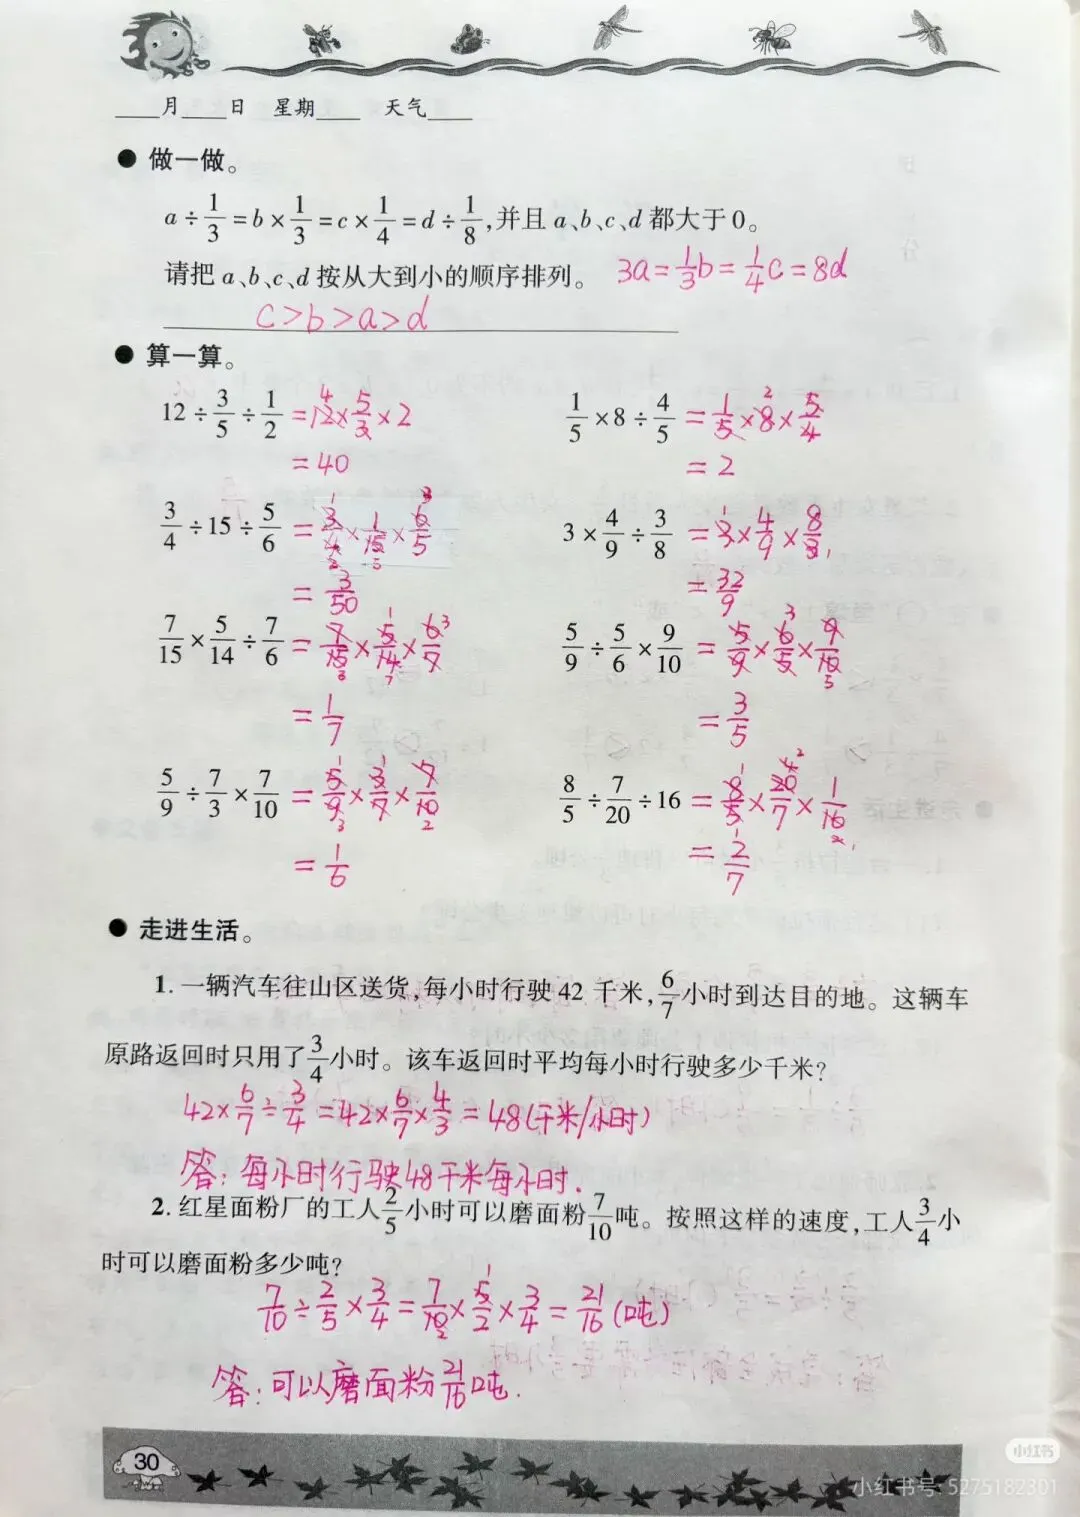 ____月____日 星期____ 天气____
● 做一做。
a ÷ 1/3 = b × 1/3 = c × 1/4 = d ÷ 1/8，并且 a、b、c、d 都大于 0。
请把 a、b、c、d 按从大到小的顺序排列。 3a = 1/3 b = 1/4 c = 8d
c > b > a > d
● 算一算。
12 ÷ 3/5 ÷ 1/2 = 12 × 5/3 × 2 1/5 × 8 ÷ 4/5 = 1/5 × 8 × 5/4
= 40 = 2
3/4 ÷ 15 ÷ 5/6 = 3/4 × 1/15 × 6/5 3 × 4/9 ÷ 3/8 = 3 × 4/9 × 8/3
= 3/50 = 32/9
7/15 × 5/14 ÷ 7/6 = 7/15 × 5/14 × 6/7 5/9 ÷ 5/6 × 9/10 = 5/9 × 6/5 × 9/10
= 1/7 = 3/5
5/9 ÷ 7/3 × 7/10 = 5/9 × 3/7 × 7/10 8/5 ÷ 7/20 ÷ 16 = 8/5 × 20/7 × 1/16
= 1/6 = 2/7
● 走进生活。
1. 一辆汽车往山区送货，每小时行驶 42 千米，6/7 小时到达目的地。这辆车
原路返回时只用了 3/4 小时。该车返回时平均每小时行驶多少千米？
42 × 6/7 ÷ 3/4 = 42 × 6/7 × 4/3 = 48（千米/小时）
答：每小时行驶48千米每小时.
2. 红星面粉厂的工人 2/5 小时可以磨面粉 7/10 吨。按照这样的速度，工人 3/4 小
时可以磨面粉多少吨？
7/10 ÷ 2/5 × 3/4 = 7/10 × 5/2 × 3/4 = 21/16（吨）
答：可以磨面粉 21/16 吨.
30
小红书
小红书号: 5275182301